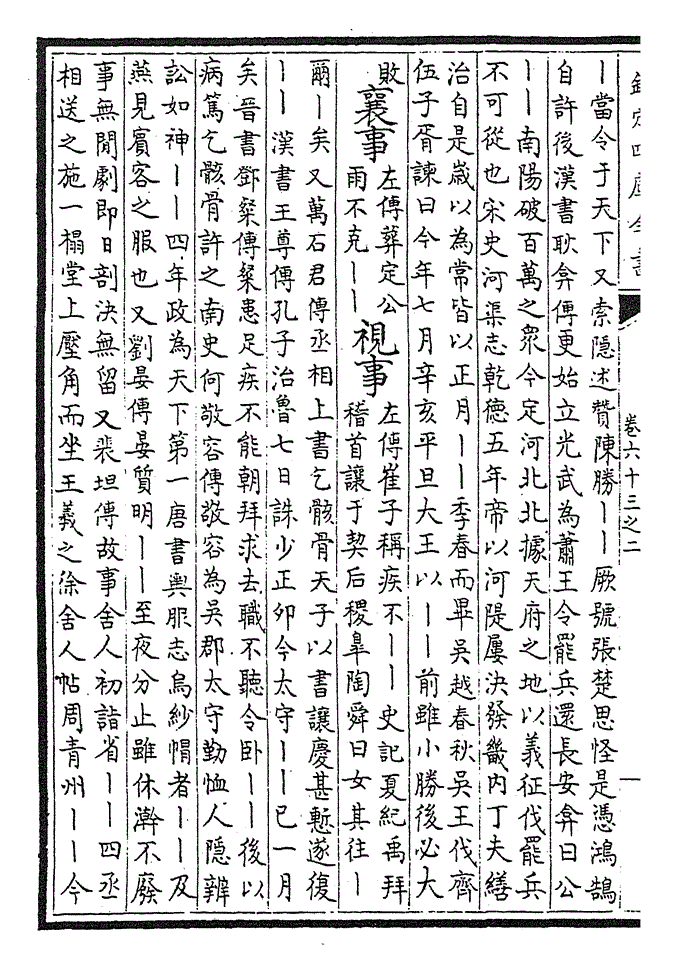 欽定四庫全書
卷六十三之二
丨當令于天下又索隱述贊陳勝丨丨厥號張楚思怪是憑鴻鵠
自許後漢書耿弇傳更始立光武為蕭王令罷兵還長安弇曰公
丨丨南陽破百萬之衆今定河北北據天府之地以義征伐罷兵
不可從也宋史河渠志乾德五年帝以河隄屢決發畿内丁夫繕
治自是嵗以為常皆以正月丨丨季春而畢吳越春秋吳王伐齊
伍子胥諫曰今年七月辛亥平旦大王以丨丨前雖小勝後必大
敗
襄事
左傳葬定公
雨不克丨丨
視事
左傳崔子稱疾不丨丨史記夏紀禹拜
稽首讓于契后稷臯陶舜曰女其往丨
爾丨矣又萬石君傳丞相上書乞骸骨天子以書讓慶甚慙遂復
丨丨漢書王尊傳孔子治魯七日誅少正卯今太守丨丨已一月
矣晉書鄧粲傳粲患足疾不能朝拜求去職不聽令卧丨丨後以
病篤乞骸骨許之南史何敬容傳敬容為吳郡太守勤恤人隱辨
訟如神丨丨四年政為天下第一唐書輿服志烏紗㡌者丨丨及
燕見賓客之服也又劉晏傳晏質明丨丨至夜分止雖休澣不廢
事無閒劇即日剖決無留又裴坦傳故事舍人初詣省丨丨四丞
相送之施一榻堂上壓角而坐王羲之徐舍人帖周青州丨丨今